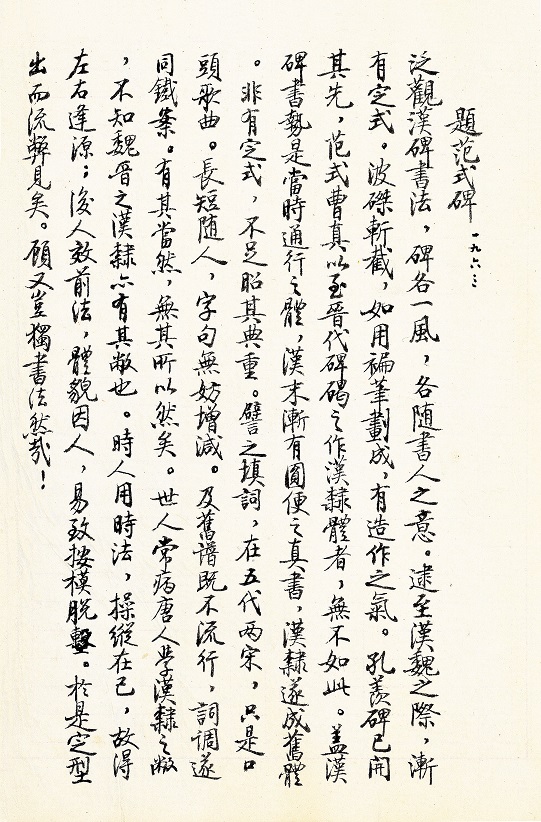 題范式碑
一九六三
泛觀漢碑書法，碑各一風，各随書人之意。逮至漢魏之際，漸
有定式。波磔斬截，如用褊筆劃成，有造作之氣。孔羨碑已開
其先，范式曹真以至晉代碑碣之作漢隸體者，無不如此。蓋漢
碑書勢是當時通行之體，漢末漸有圓便之真書，漢隸遂成舊體
。非有定式，不足昭其典重。譬之填詞，在五代两宋，只是口
頭歌曲。長短随人，字句無妨增減。及舊譜既不流行，詞調遂
同鐵案。有其當然，無其所以然矣。世人常病唐人學漢隸之敝
，不知魏晉之漢隸亦有其敝也。時人用時法，操縱在己，故得
左右逢源；後人效前法，體貌因人，易致按模脱墼。於是定型
出而流弊見矣。顧又豈獨書法然哉！